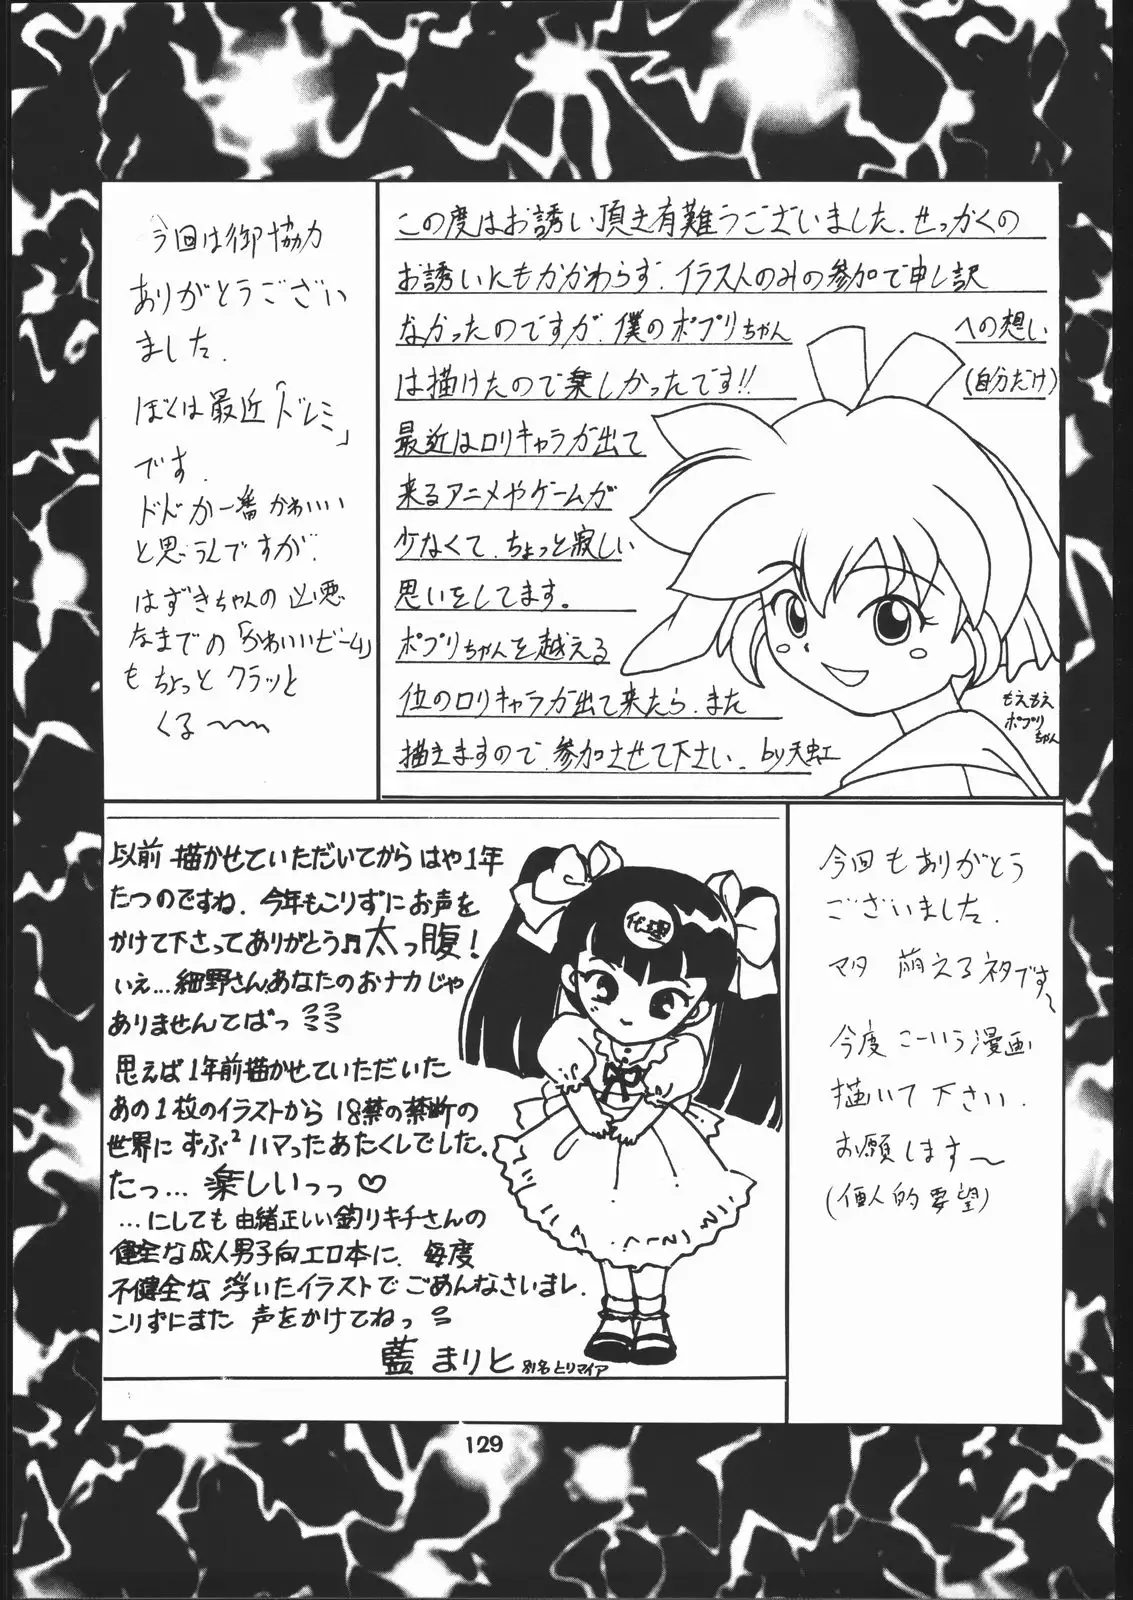 この度はお誘い頂き有難うございました。せっかくの
お誘いにもかかわらず、イラストのみの参加で申し訳
なかったのですが、僕のポプリちゃんへの想い
は描けたので楽しかったです!!(自分だけ)
最近はロリキャラが出て
来るアニメやゲームが
少なくて、ちょっと寂しい
思いをしてます。
ポプリちゃんを越える
位のロリキャラが出て来たら、また
描きますので、参加させて下さい。by天虹
もえもえ
ポプリ
ちゃん
今回は御協力
ありがとうござい
ました.
ぼくは最近「ドレミ」
です.
ドドが一番かわいい
と思うんですが.
はずきちゃんの凶悪
なまでの「かわいいビーム」
もちょっとクラッと
くる〜
以前 描かせていただいてから はや1年
たつのですね、今年もこりずにお声を
かけて下さってありがとう♬太っ腹!
いえ…細野さん、あなたのおナカじゃ
ありませんてばっ
思えば 1年前描かせていただいた
あの1枚のイラストから 18禁の禁断の
世界に ずぶ²ハマったあたくしでした。
たっ…楽しいっっ♡
…にしても 由緒正しい釣りキチさんの
健全な成人男子向エロ本に、毎度
不健全な 浮いたイラストで ごめんなさいまし.
こりずにまた 声をかけてねっ
藍 まりと 別名とりマイア
代理
今回もありがとう
ございました.
マタ 萌えるネタです〜
今度 こーいう漫画
描いて下さい.
お願します〜
(個人的要望)
129